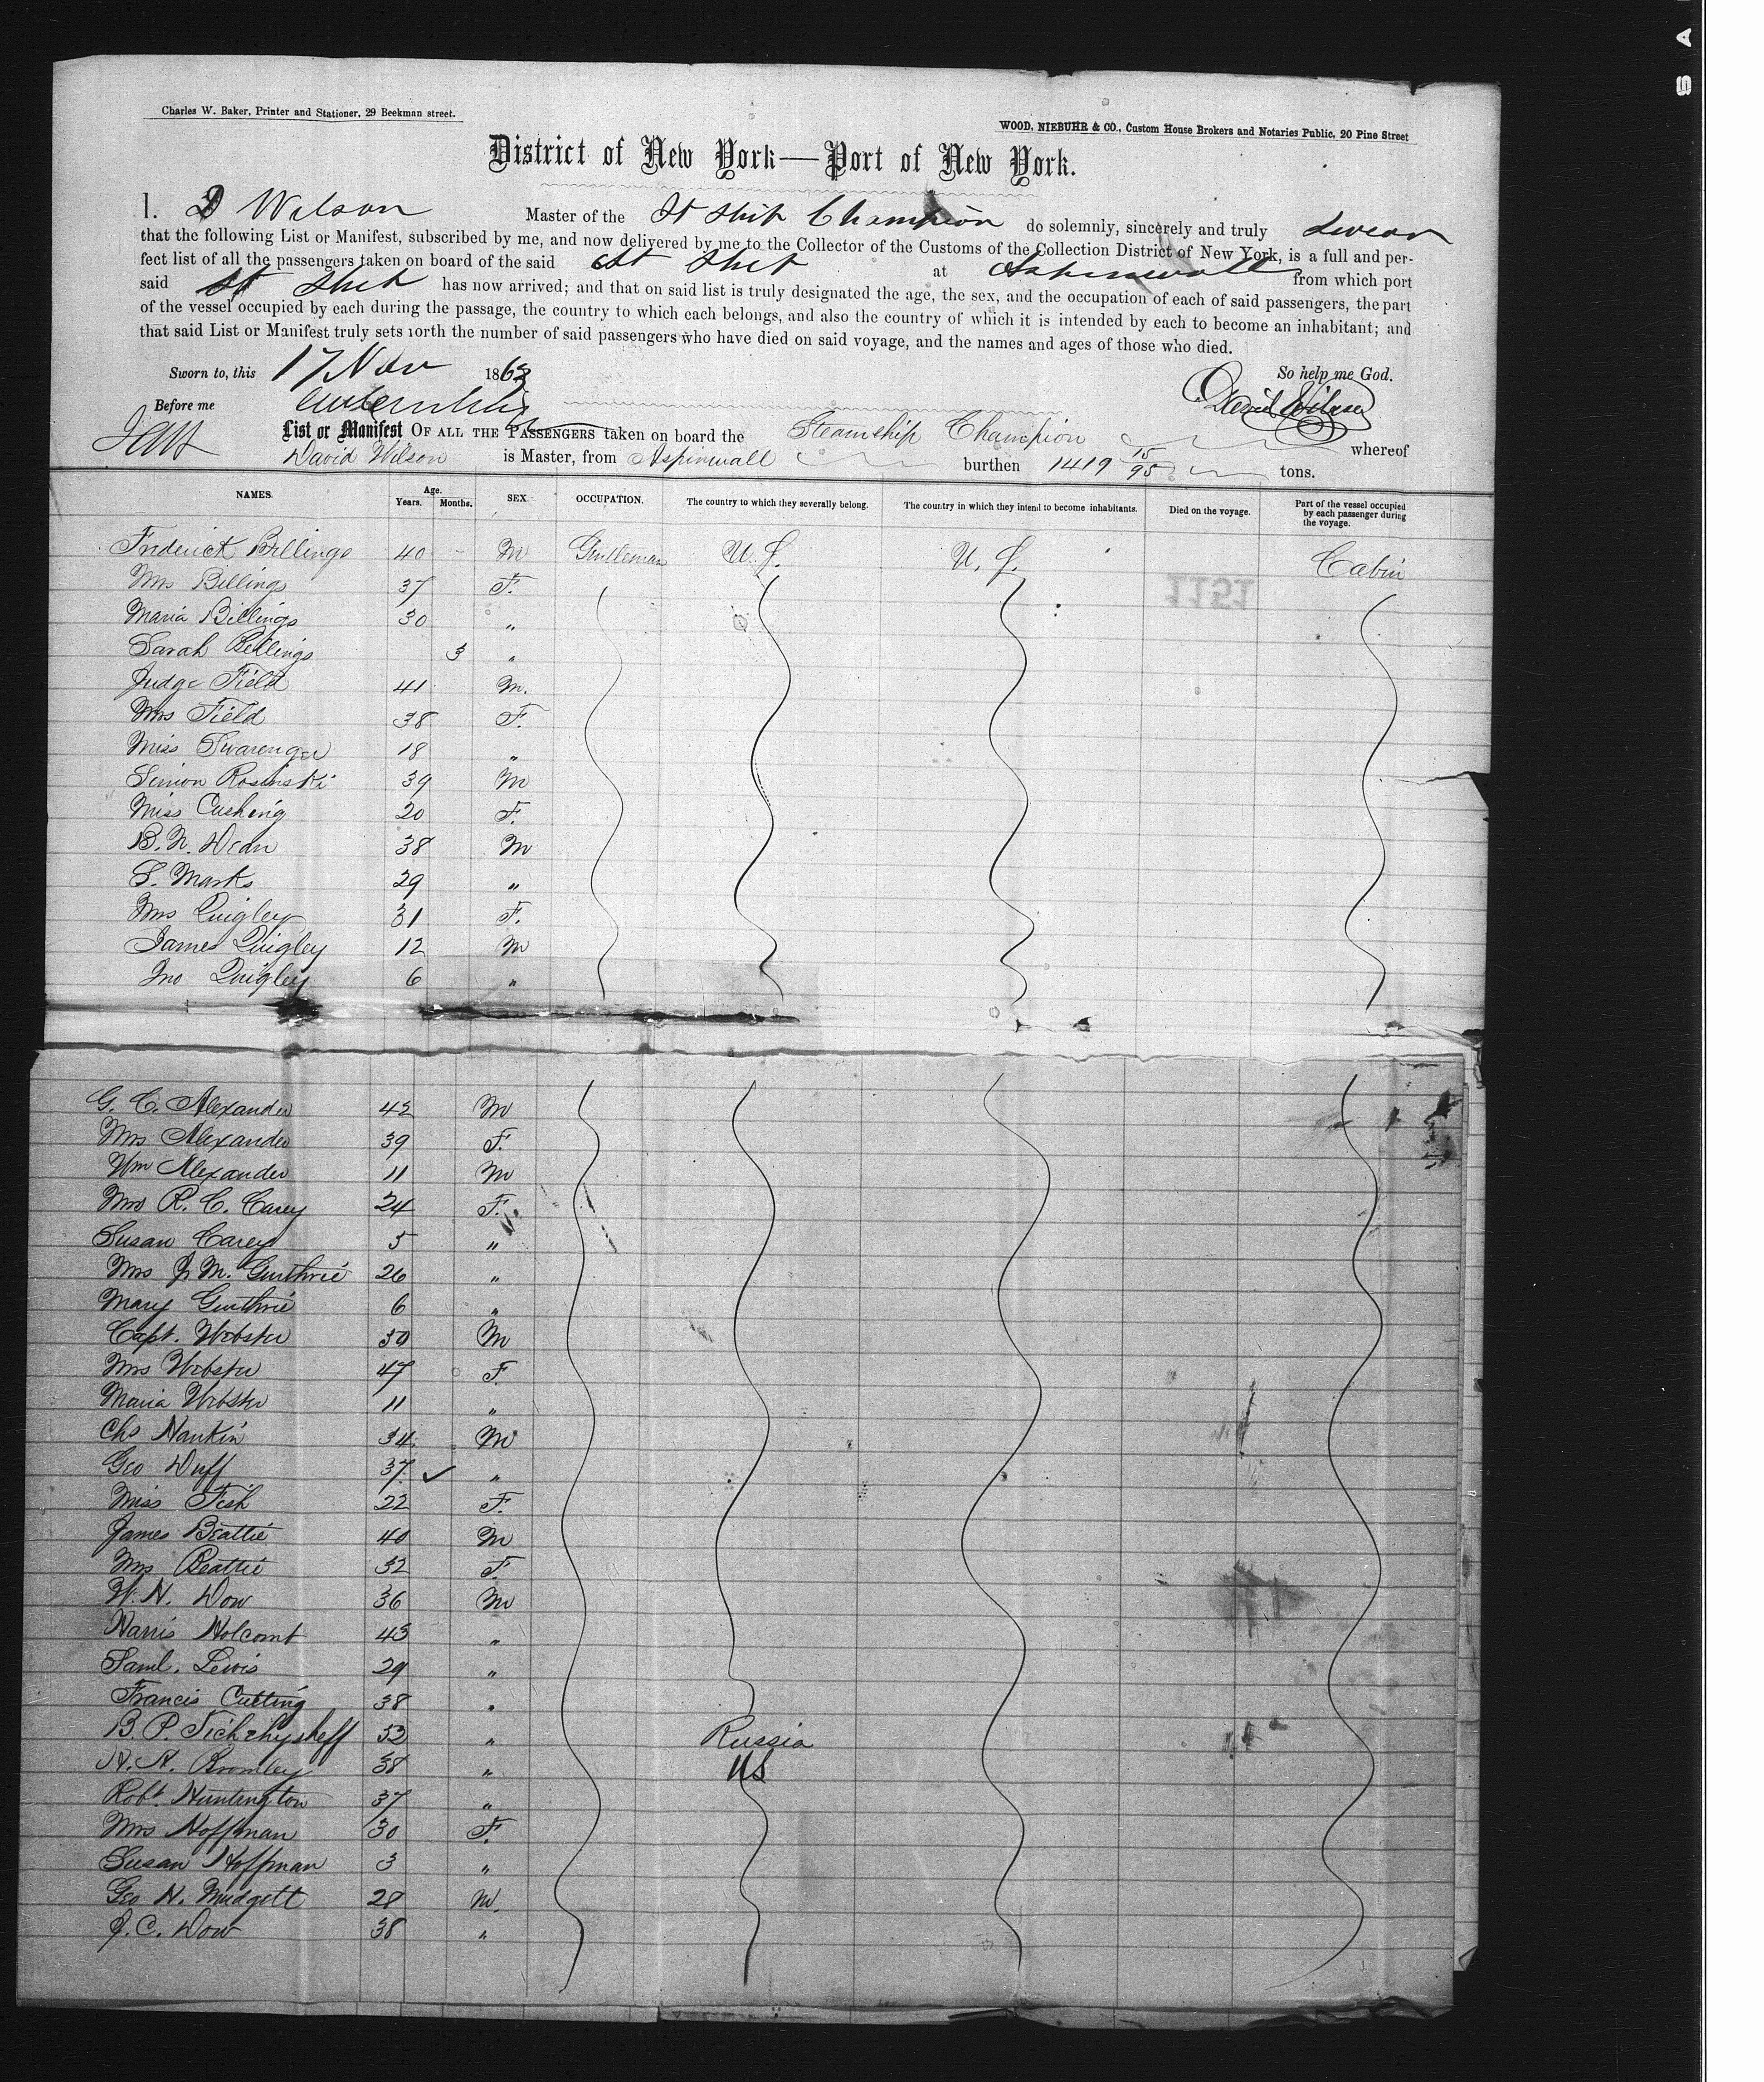 Charles W. Baker, Printer and Stationer, 29 Beekman street.
WOOD, NIEBUHR & CO., Custom House Brokers and Notaries Public, 20 Pine Street
District of New York—Port of New York.
I. D Wilson Master of the St Ship Champion do solemnly, sincerely and truly swear
that the following List or Manifest, subscribed by me, and now delivered by me to the Collector of the Customs of the Collection District of New York, is a full and per-
fect list of all the passengers taken on board of the said St Ship at Aspinwall from which port
said St Ship has now arrived; and that on said list is truly designated the age, the sex, and the occupation of each of said passengers, the part
of the vessel occupied by each during the passage, the country to which each belongs, and also the country of which it is intended by each to become an inhabitant; and
that said List or Manifest truly sets forth the number of said passengers who have died on said voyage, and the names and ages of those who died.
Sworn to, this 17 Nov 1863 So help me God.
Before me David Wilson
List or Manifest OF ALL THE PASSENGERS taken on board the Steamship Champion whereof
David Wilson is Master, from Aspinwall burthen 1419 15/95 tons.
NAMES. Age. Years. Months. SEX. OCCUPATION. The country to which they severally belong. The country in which they intend to become inhabitants. Died on the voyage. Part of the vessel occupied by each passenger during the voyage.
Frederick Billings 40 - M Gentleman U.S. U.S. Cabin
Mrs Billings 37 F. 1151
Maria Billings 30 "
Sarah Billings 3 "
Judge Field 41 M.
Mrs Field 38 F.
Miss Swarenger 18 "
Simon Rosinski 39 M
Miss Cushing 20 F.
B. N. Dean 38 M
S. Marks 29 "
Mrs Quigley 31 F.
James Quigley 12 M
Jno Quigley 6 "
G. C. Alexander 42 M
Mrs Alexander 39 F.
Wm Alexander 11 M
Mrs R. C. Carey 24 F.
Susan Carey 5 "
Mrs J. M. Guthrie 26 "
Mary Guthrie 6 "
Capt. Webster 50 M
Mrs Webster 47 F.
Maria Webster 11 "
Chs Nankin 34 M
Geo Duff 37 ✓ "
Miss Fish 22 F.
James Beattie 40 M
Mrs Beattie 32 F.
W. H. Dow 36 M
Harris Holcomb 43 "
Saml. Lewis 29 "
Francis Cutting 38 "
B. P. Tichzhysheff 52 " Russia
A. A. Bromley 38 " US
Robt Huntington 37 "
Mrs Hoffman 30 F.
Susan Hoffman 3 "
Geo H. Mudgett 28 M.
J. C. Dow 38 "